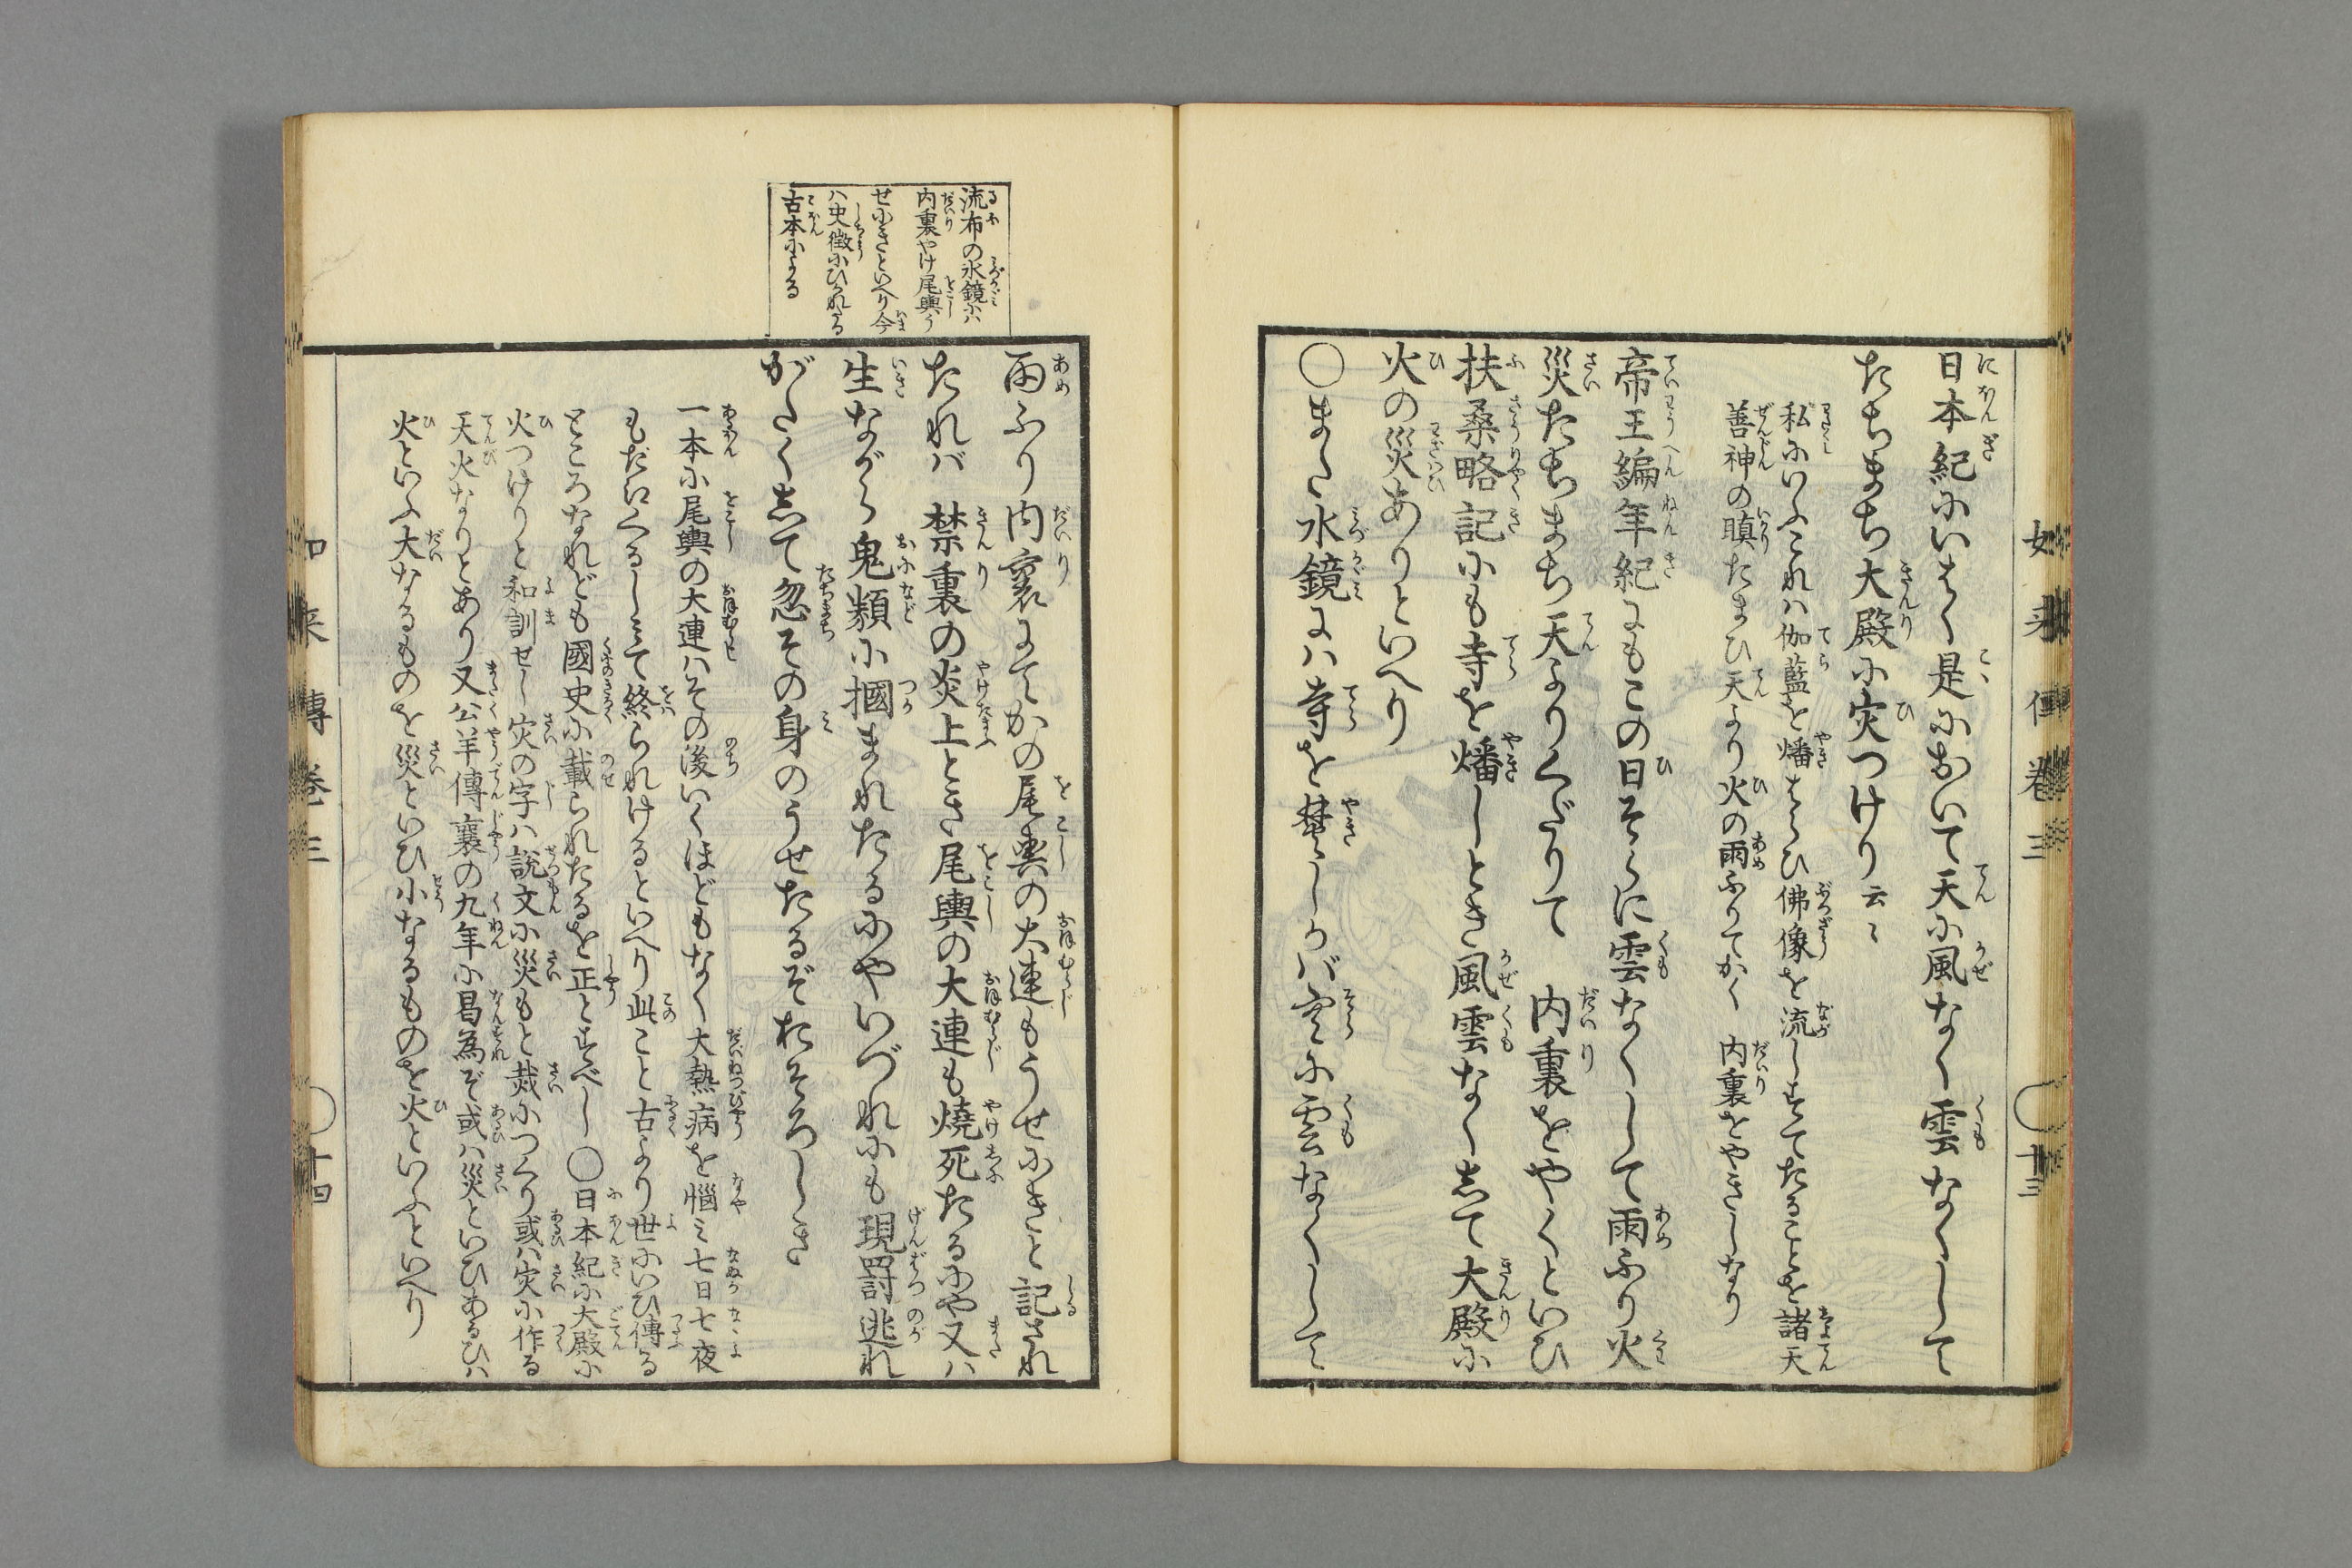 日本紀にいはく是において天に風なく雲なくして
たちまち大殿に灾つけり云々
私にいふこれハ伽藍を燔はらひ佛像を流しすてたることを諸天
善神の瞋たまひ天より火の雨ふりてかく 内裏をやきしなり
帝王編年紀にもこの日そらに雲なくして雨ふり火
災たちまち天よりくだりて 内裏をやくといひ
扶桑略記にも寺を燔しとき風雲なくして大殿に
火の災ありといへり
○また水鏡にハ寺を焚しかバ空に雲なくして
如来傳巻三 ○十三
流布の水鏡にハ
内裏やけ尾輿う
せにきといへり今
ハ史徴にひかれたる
古本による
雨ふり内裏にてかの尾輿の大連もうせにきと記され
たれバ 禁裏の炎上とき尾輿の大連も燒死たるにや又ハ
生ながら鬼類に摑まれたるにやいづれにも現罸逃れ
がたくして忽その身のうせたるぞおそろしき
一本に尾輿の大連ハその後いくほどもなく大熱病を惱ミ七日七夜
もだいくるしミて終られけるといへり此こと古より世にいひ傳る
ところなれども國史に載られたるを正とすべし○日本紀に大殿に
火つけりと和訓せし灾の字ハ說文に災もと烖につくり或ハ灾に作る
天火なりとあり又公羊傳襄の九年に曷為ぞ或ハ災といひあるひハ
火といふ大なるものを災といひ小なるものを火といふといへり
如来傳巻三 ○十四